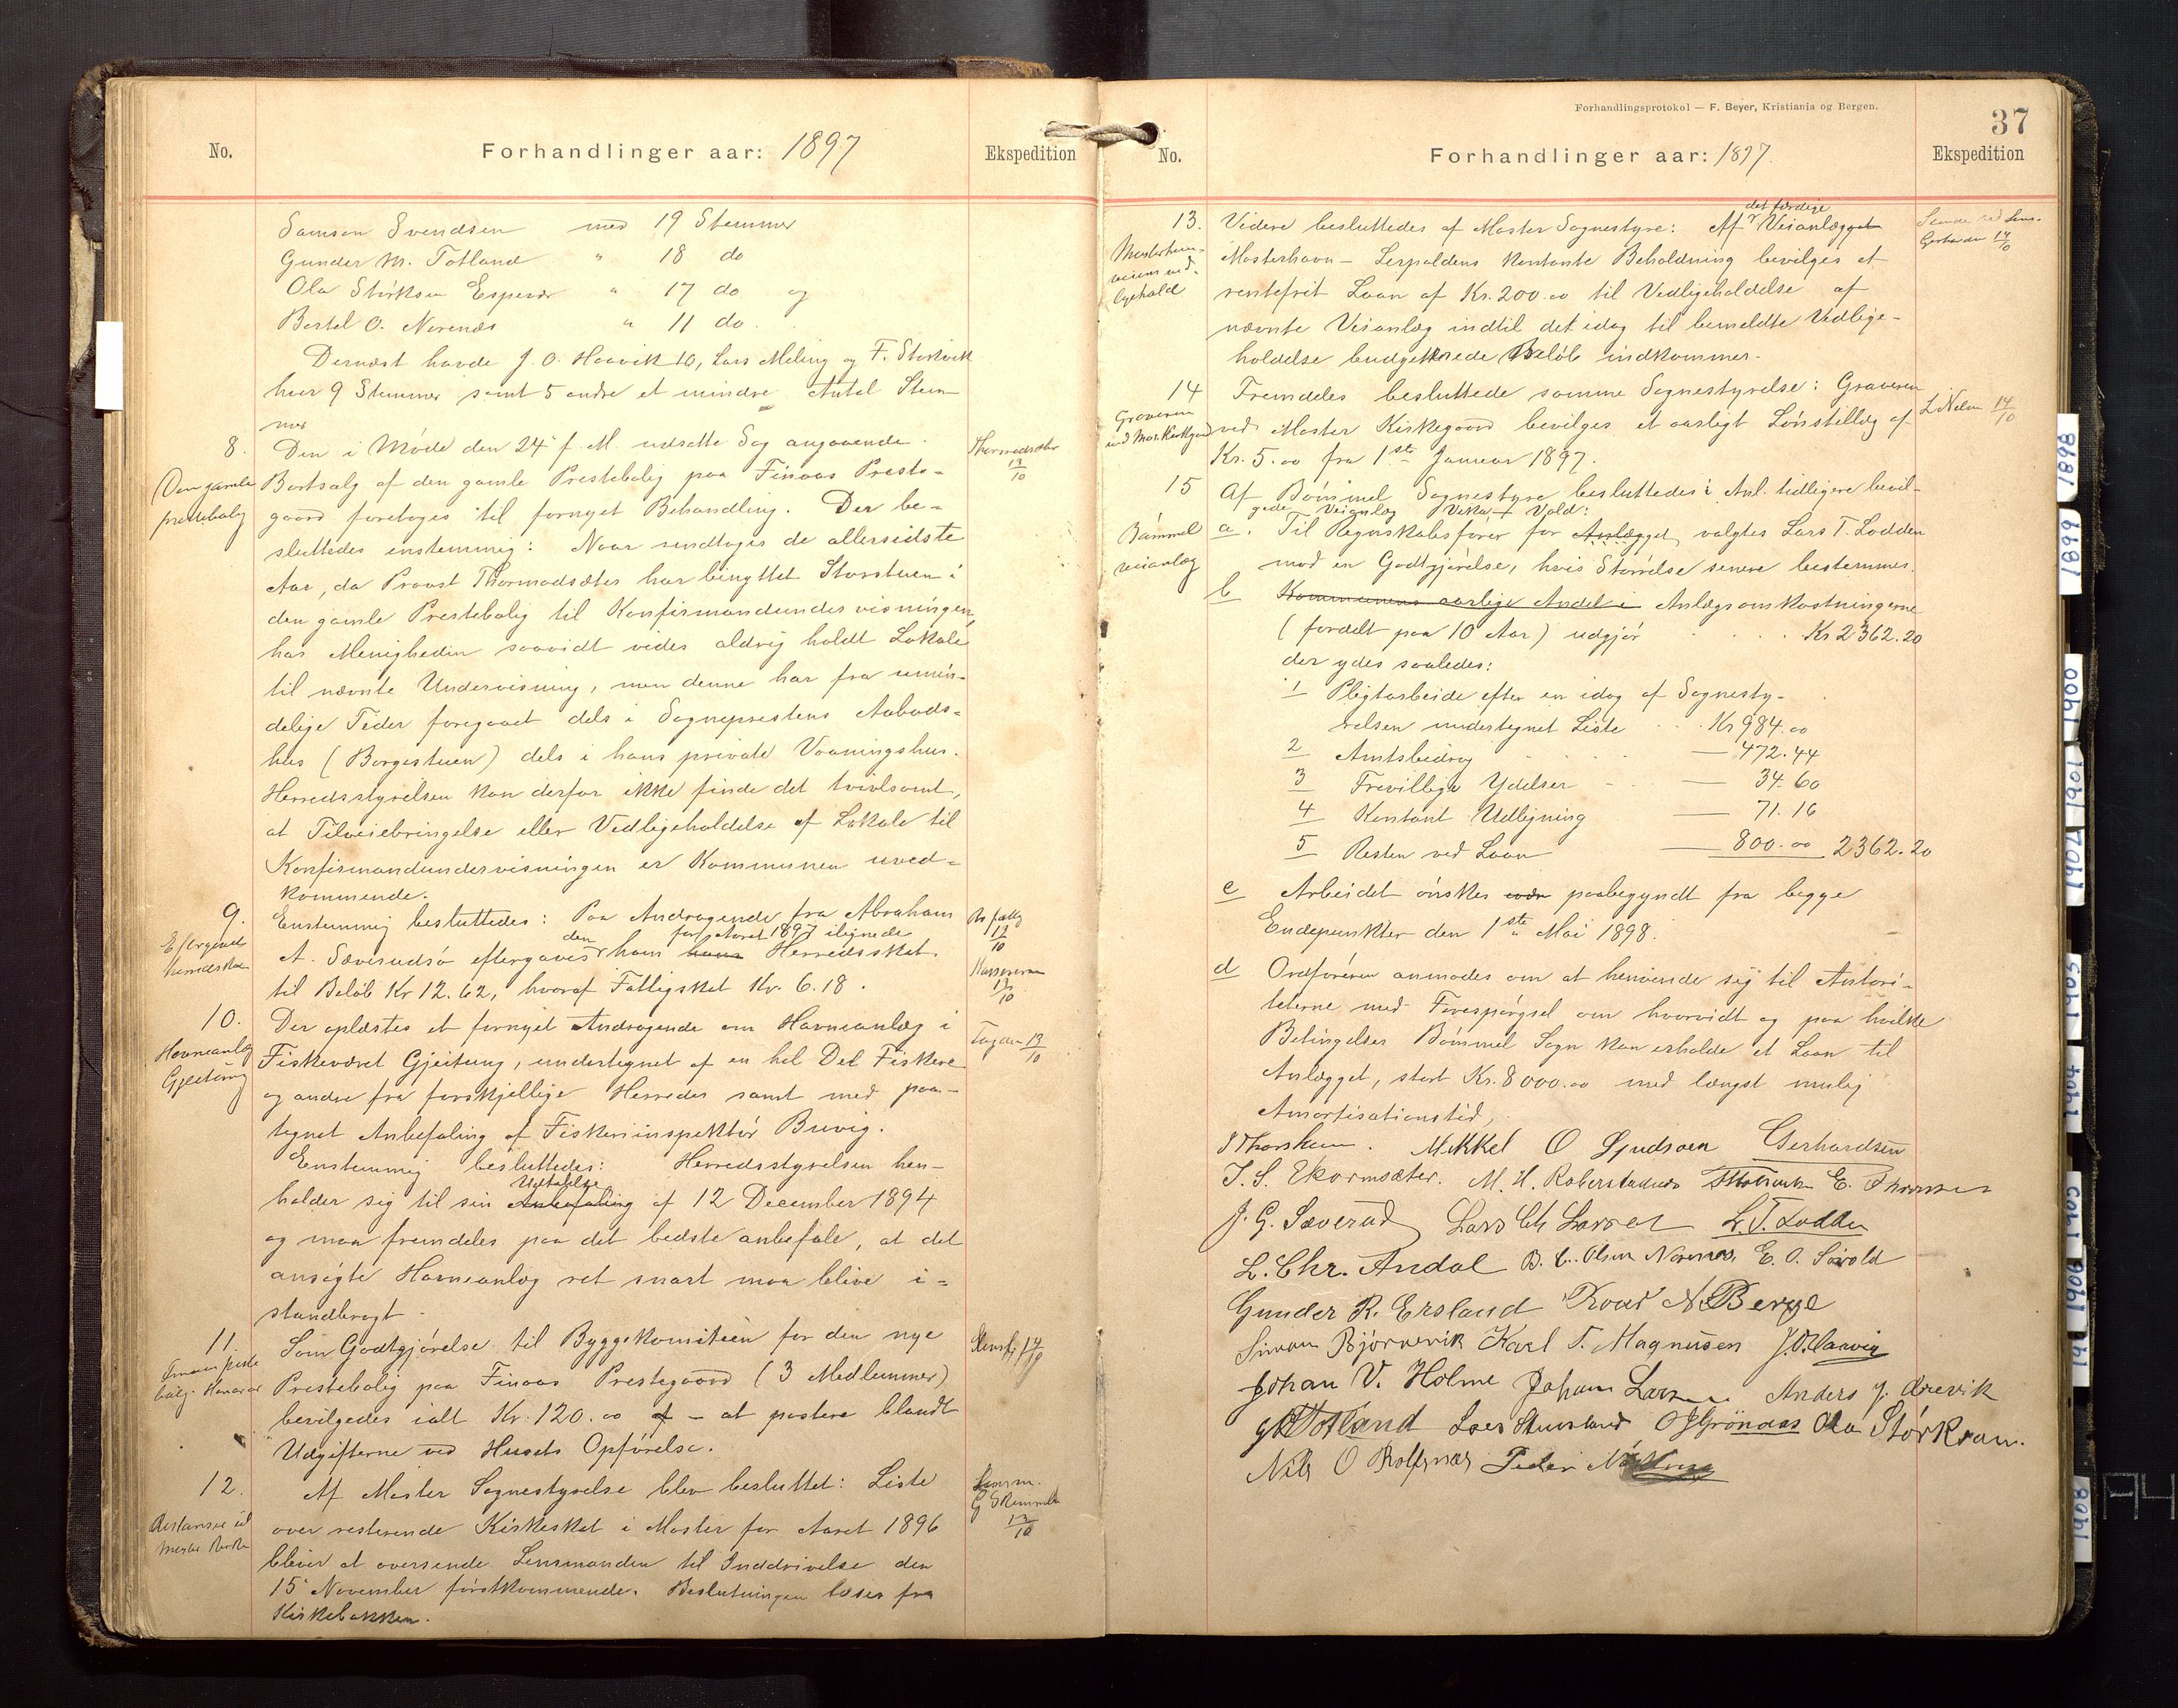 No.
Forhandlinger aar: 1897
Ekspedition
Samson Svendsen med 19 Stemmer
Gunder M. Totland " 18 do
Ola Störksen Espevær " 17 do og
Bertel O. Norenæs " 11 do.
Dernæst havde J. O. Haavik 10, Lars Meling og F. Storkvik
hver 9 Stemmer samt 5 andre et mindre Antal Stem-
mer
8.
Den gamle
prestebolig
Den i Møde den 24 f. M. udsatte Sag angaaende
Bortsalg af den gamle Prestebolig paa Finaas Preste-
gaard foretoges til fornyet Behandling. Der be-
sluttedes enstemmig: Naar undtages de allersidste
Aar, da Provst Thormodsæter har benyttet Storstuen i
den gamle Prestebolig til Konfirmandundervisningen,
har Menigheden saavidt vides aldrig holdt Lokale
til nævnte Undervisning, men denne har fra umin-
delige Tider foregaaet dels i Sogneprestens Aabods-
hus (Borgestuen) dels i hans private Vaaningshus.
Herredsstyrelsen kan derfor ikke finde det tvivlsomt,
at Tilveiebringelse eller Vedligeholdelse af Lokale til
Konfirmandundervisningen er Kommunen uved-
kommende.
Thormodsæter
13/10
9.
Eftergivet
herredsskat
Enstemmig besluttedes: Paa Andragende fra Abraham
den for Aaret 1897 ilignede
A. Sæverudsö eftergaves ham hans Herredsskat
til Beløb Kr 12.62, hvoraf Fattigskat Kr. 6.18.
13/10
Kassereren
13/10
10.
Havneanlæg
Gjeitung
Der oplæstes et fornyet Andragende om Havneanlæg i
Fiskeværet Gjeitung, undertegnet af en hel Del Fiskere
og andre fra forskjellige Herreder samt med paa-
tegnet Anbefaling af Fiskeriinspektør Buvig.
Enstemmig besluttedes: Herredsstyrelsen hen-
Udtalelse
holder sig til sin Anbefaling af 12 December 1894
og maa fremdeles paa det bedste anbefale, at det
ansøgte Havneanlæg ret snart maa blive i-
standbragt.
13/10
11.
Som Godtgjørelse til Byggekomiteen for den nye
Prestebolig paa Finaas Prestegaard (3 Medlemmer)
bevilgedes ialt Kr. 120.00 - at postere blandt
Udgifterne ved Husets Opførelse.
12.
Af Moster Sognestyrelse blev besluttet: Liste
over resterende Kirkeskat i Moster for Aaret 1896
bliver at oversende Lensmanden til Inddrivelse den
15 November førstkommende. Beslutningen læses fra
Kirkebakken.
13/10
Forhandlingsprotokol — F. Beyer, Kristiania og Bergen.
37
No.
Forhandlinger aar: 1897.
Ekspedition
13.
Mosterhavn-
veiens ved-
ligehold
det færdige
Videre besluttedes af Moster Sognestyre: Af Veianlægget
Mosterhavn - Lerpoldens kontante Beholdning bevilges et
rentefrit Laan af Kr. 200.00 til Vedligeholdelse af
nævnte Veianlæg indtil det idag til bemeldte Vedlige-
holdelse budgetterede Beløb indkommer.
14/10
14
Graveren
ved Mos. Kirkegaard
Fremdeles besluttede samme Sognestyrelse: Graveren
ved Moster Kirkegaard bevilges et aarligt Lønstillæg af
Kr. 5.00 fra 1ste Januar 1897.
14/10
15
Bømmel
veianlæg
Af Bømmel Sognestyre besluttedes i Anl. tidligere bevil-
gede Veianlæg Vika - Vold:
a. Til Regnskabsfører for Anlægget valgtes Lars T. Lodden
mod en Godtgjørelse, hvis Størrelse senere bestemmes.
b Kommunens aarlige Andel i Anlægsomkostningerne
(fordelt paa 10 Aar) udgjør Kr 2362.20
der ydes saaledes:
1 Pligtarbeide efter en idag af Sognesty-
relsen undertegnet Liste Kr 984.00
2 Amtsbidrag — 472.44
3 Frivillige Ydelser — 34.60
4 Kontant Udligning — 71.16
5 Resten ved Laan — 800.00 2362.20
c Arbeidet ønskes paabegyndt fra begge
Endepunkter den 1ste Mai 1898.
d Ordføreren anmodes om at henvende sig til Autori-
teterne med Forespørgsel om hvorvidt og paa hvilke
Betingelser Bømmel Sogn kan erholde et Laan til
Anlægget, stort Kr. 8000.00 med længst mulig
Amortisationstid.
Mikkel O Gjudsoen Gerhardsen
J. G. Sæverud Lars Ch Larsen L. T. Lodden
L. Chr. Andal B. C. Olsen Norenæs, E. O. Sörvold
Gunder R. Ersland Roar N. Berge
Simon Björnevik Karl T. Magnusen J. O. Haavig
Johan V. Holme Johan Larsen Anders J. Örevik
G M Totland O J Grönaas Ola Störksen.
Nils O Rolfsnæs Peder
1898
1899
1900
1901
1902
1903
1904
1905
1906
1907
1908